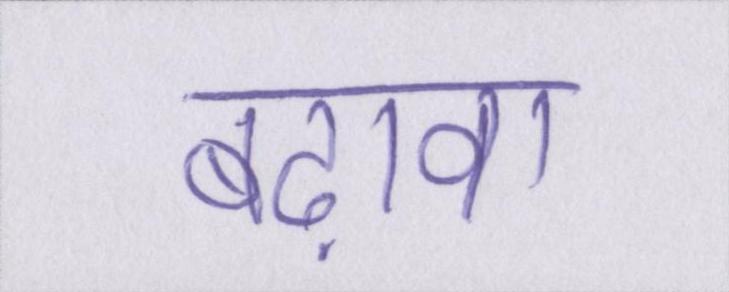 बढ़ावा